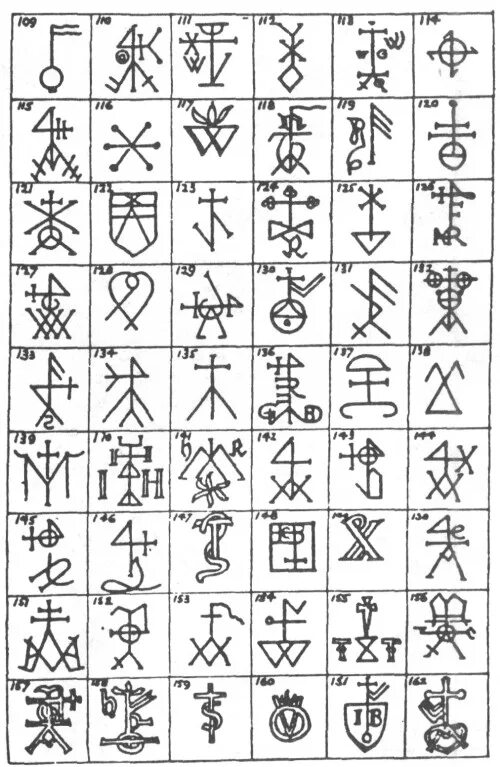 109 110 111 112 113 114
W W
115 116 117 118 119 120
H W
121 122 123 124 125 126
R
127 128 129 130 131 132
133 134 135 136 137 138
S B
139 140 141 142 143 144
I H R
145 146 147 148 149 150
151 152 153 154 155 156
T T
157 158 159 160 161 162
V I B